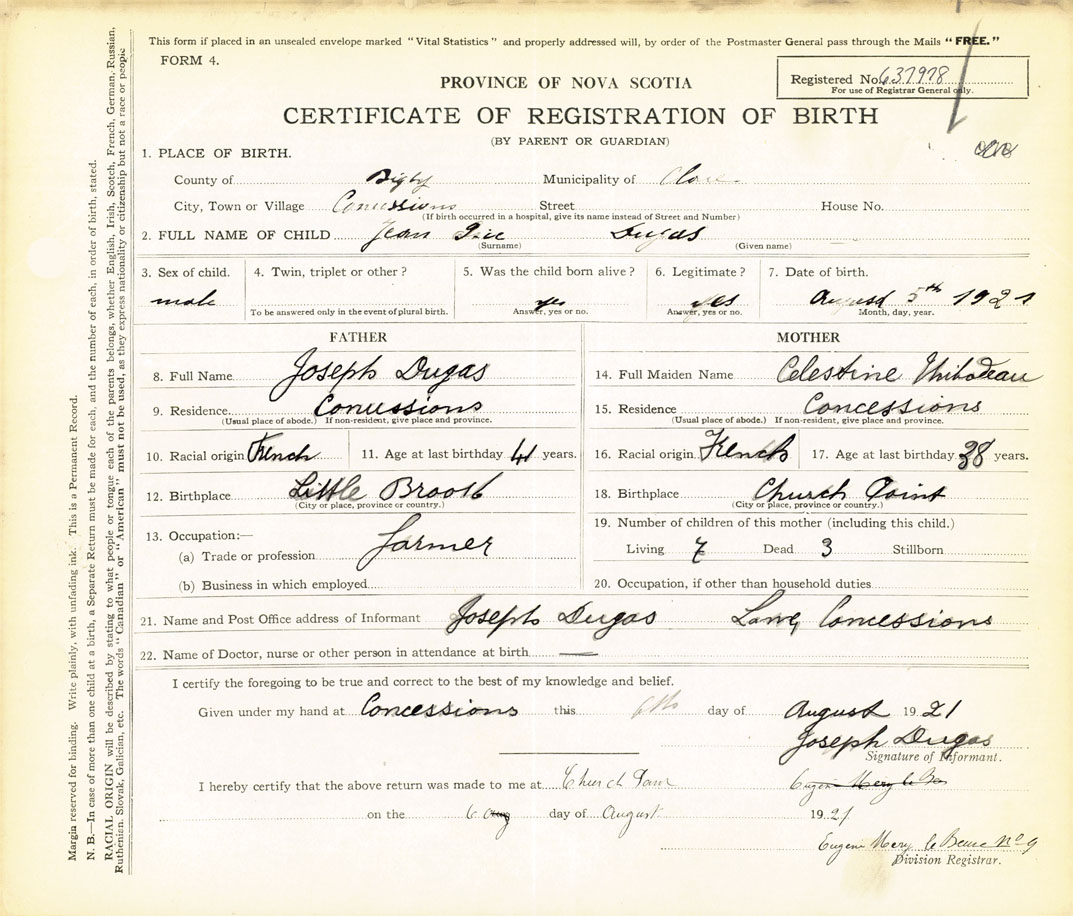 This form if placed in an unsealed envelope marked "Vital Statistics" and properly addressed will, by order of the Postmaster General pass through the Mails "FREE."
FORM 4.
Registered No. 637978
For use of Registrar General only.
PROVINCE OF NOVA SCOTIA
CERTIFICATE OF REGISTRATION OF BIRTH
(BY PARENT OR GUARDIAN)
1. PLACE OF BIRTH.
County of Digby Municipality of Clare
City, Town or Village Concessions Street House No.
(If birth occurred in a hospital, give its name instead of Street and Number)
2. FULL NAME OF CHILD Jean Dugas
(Surname) (Given name)
3. Sex of child. 4. Twin, triplet or other? 5. Was the child born alive? 6. Legitimate? 7. Date of birth.
male yes yes August 5th 1921
To be answered only in the event of plural birth. Answer, yes or no. Answer, yes or no. Month, day, year.
FATHER MOTHER
8. Full Name Joseph Dugas 14. Full Maiden Name Celestine Thibodeau
9. Residence Concessions 15. Residence Concessions
(Usual place of abode.) If non-resident, give place and province. (Usual place of abode.) If non-resident, give place and province.
10. Racial origin French 11. Age at last birthday 41 years. 16. Racial origin French 17. Age at last birthday 38 years.
12. Birthplace Little Brook 18. Birthplace Church Point
(City or place, province or country.) (City or place, province or country.)
13. Occupation:— 19. Number of children of this mother (including this child.)
(a) Trade or profession farmer Living 7 Dead 3 Stillborn
(b) Business in which employed 20. Occupation, if other than household duties
21. Name and Post Office address of Informant Joseph Dugas Concessions
22. Name of Doctor, nurse or other person in attendance at birth —
I certify the foregoing to be true and correct to the best of my knowledge and belief.
Given under my hand at Concessions this 6th day of August 1921
Joseph Dugas
Signature of Informant.
I hereby certify that the above return was made to me at Church
on the 6 day of August 1921
Eugene No 9
Division Registrar.
Margin reserved for binding. Write plainly, with unfading ink. This is a Permanent Record.
N. B.—In case of more than one child at a birth, a Separate Return must be made for each, and the number of each, in order of birth, stated.
RACIAL ORIGIN will be described by stating to what people or tongue each of the parents belongs, whether English, Irish, Scotch, French, German, Russian,
Ruthenian, Slovak, Galician, etc. The words "Canadian" or "American" must not be used, as they express nationality or citizenship but not a race or people